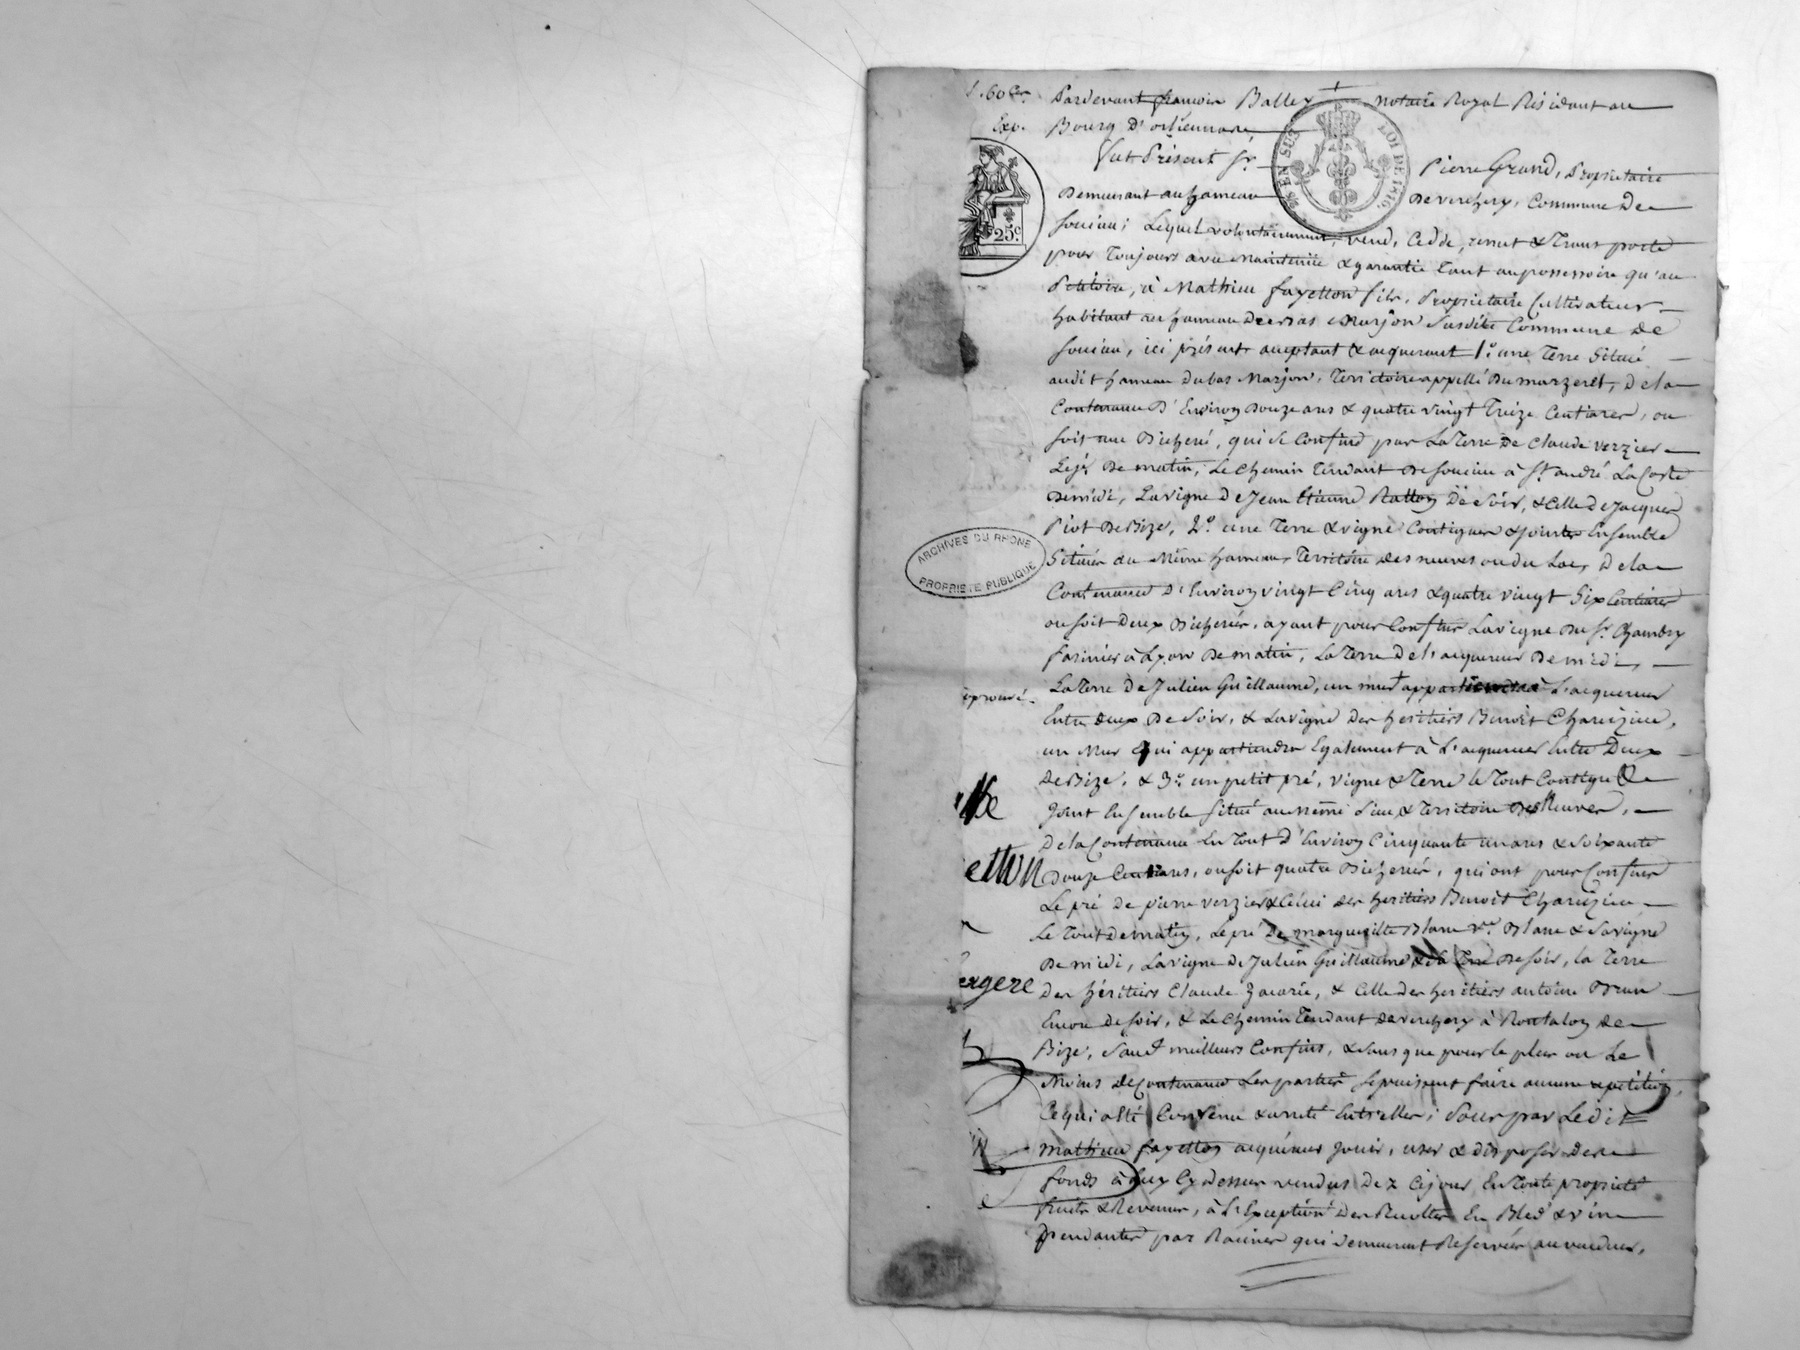 Pardevant françois Balley + notaire Royal Résidant au
Exp. Bourg d'orliennas
fut Présent Sr. Pierre Grand, Propriétaire
Demeurant au hameau De verchery, Commune De
soucieu; Lequel volontairement, vend, Cedde, remet & Transporte
pour Toujours avec maintenüe & garantie Tant au possessoire qu'au
Pétitoire, à Mathieu fayetton fils, Propriétaire Cultivateur
habitant au hameau De bas Marjon susdite Commune de
soucieu, ici présent acceptant & acquerant 1.° une Terre Située
audit hameau Du bas Marjon, Territoire appellé Du marzeret, De la
Contenance D'Environ Douze ares & quatre vingt Treize Centiares, ou
soit une Bicherée, qui se Confine par La Terre De Claude verzier
De matin, Le Chemin Tendant De souciéu à St. andré La Coste
De midi, La vigne De Jean Etienne Ratton De soir, & Celle De Jacques
Piot De Bize, 2.° une Terre & vigne Contigues & jointes Ensemble
Situées au Même hameau, Territoire des neuves ou du Lac, De la
Contenance D'Environ vingt Cinq ares & quatre vingt Six Centiares
ou soit Deux Bicherées, ayant pour Confins La vigne Du Sr. Chambry
farinier à Lyon De matin, La Terre De l'acquereur De midi,
La Terre De Julien Guillaume, un mur + L'acquereur
Entre deux De Soir, & La vigne Des héritiers Benoit Charézieu,
un Mur qui appartiendra Egalement à L'acquereur Entre Deux
De Bize, & 3.° un petit pré, vigne & Terre le Tout Contigu &
Joint Ensemble Situé au même Lieu & Territoire Des Neuves,
De la Contenance En Tout D'Environ Cinquante un ares & Soixante
Douze Centiares, ou soit quatre Bicherées, qui ont pour Confins
Le pré De pierre verzier & Celui Des héritiers Benoit Charézieu
Le Tout De matin, Le pré De marguerite Blanc Ve. Blanc & sa vigne
De midi, La vigne De Julien Guillaume De soir, la Terre
Des héritiers Claude Zacarie, & Celle Des heritiers antoine Brun
Encore De soir, & Le Chemin Tendant De verchery à Rontalon De
Bize, Sauf meilleurs Confins, & sans que pour le plus ou Le
Moins De Contenance Les parties se puissent faire aucune répétition,
Ce qui a Eté Convenu & arrêté Entr'elles; Pour par Ledit
Mathieu fayetton acquéreur jouir, user & Disposer Des
fonds à Lui Cy Dessus vendus Dez Ce jour, En Toute propriété
fruits & Revenus, à L'Exception Des Récoltes En Bled & vin
pendantes par Racines qui Demeurent Reservées au vendeur,
25 C
EN SUS
LOI DE 1816.
ARCHIVES DU RHONE
PROPRIETE PUBLIQUE
etton
ergere